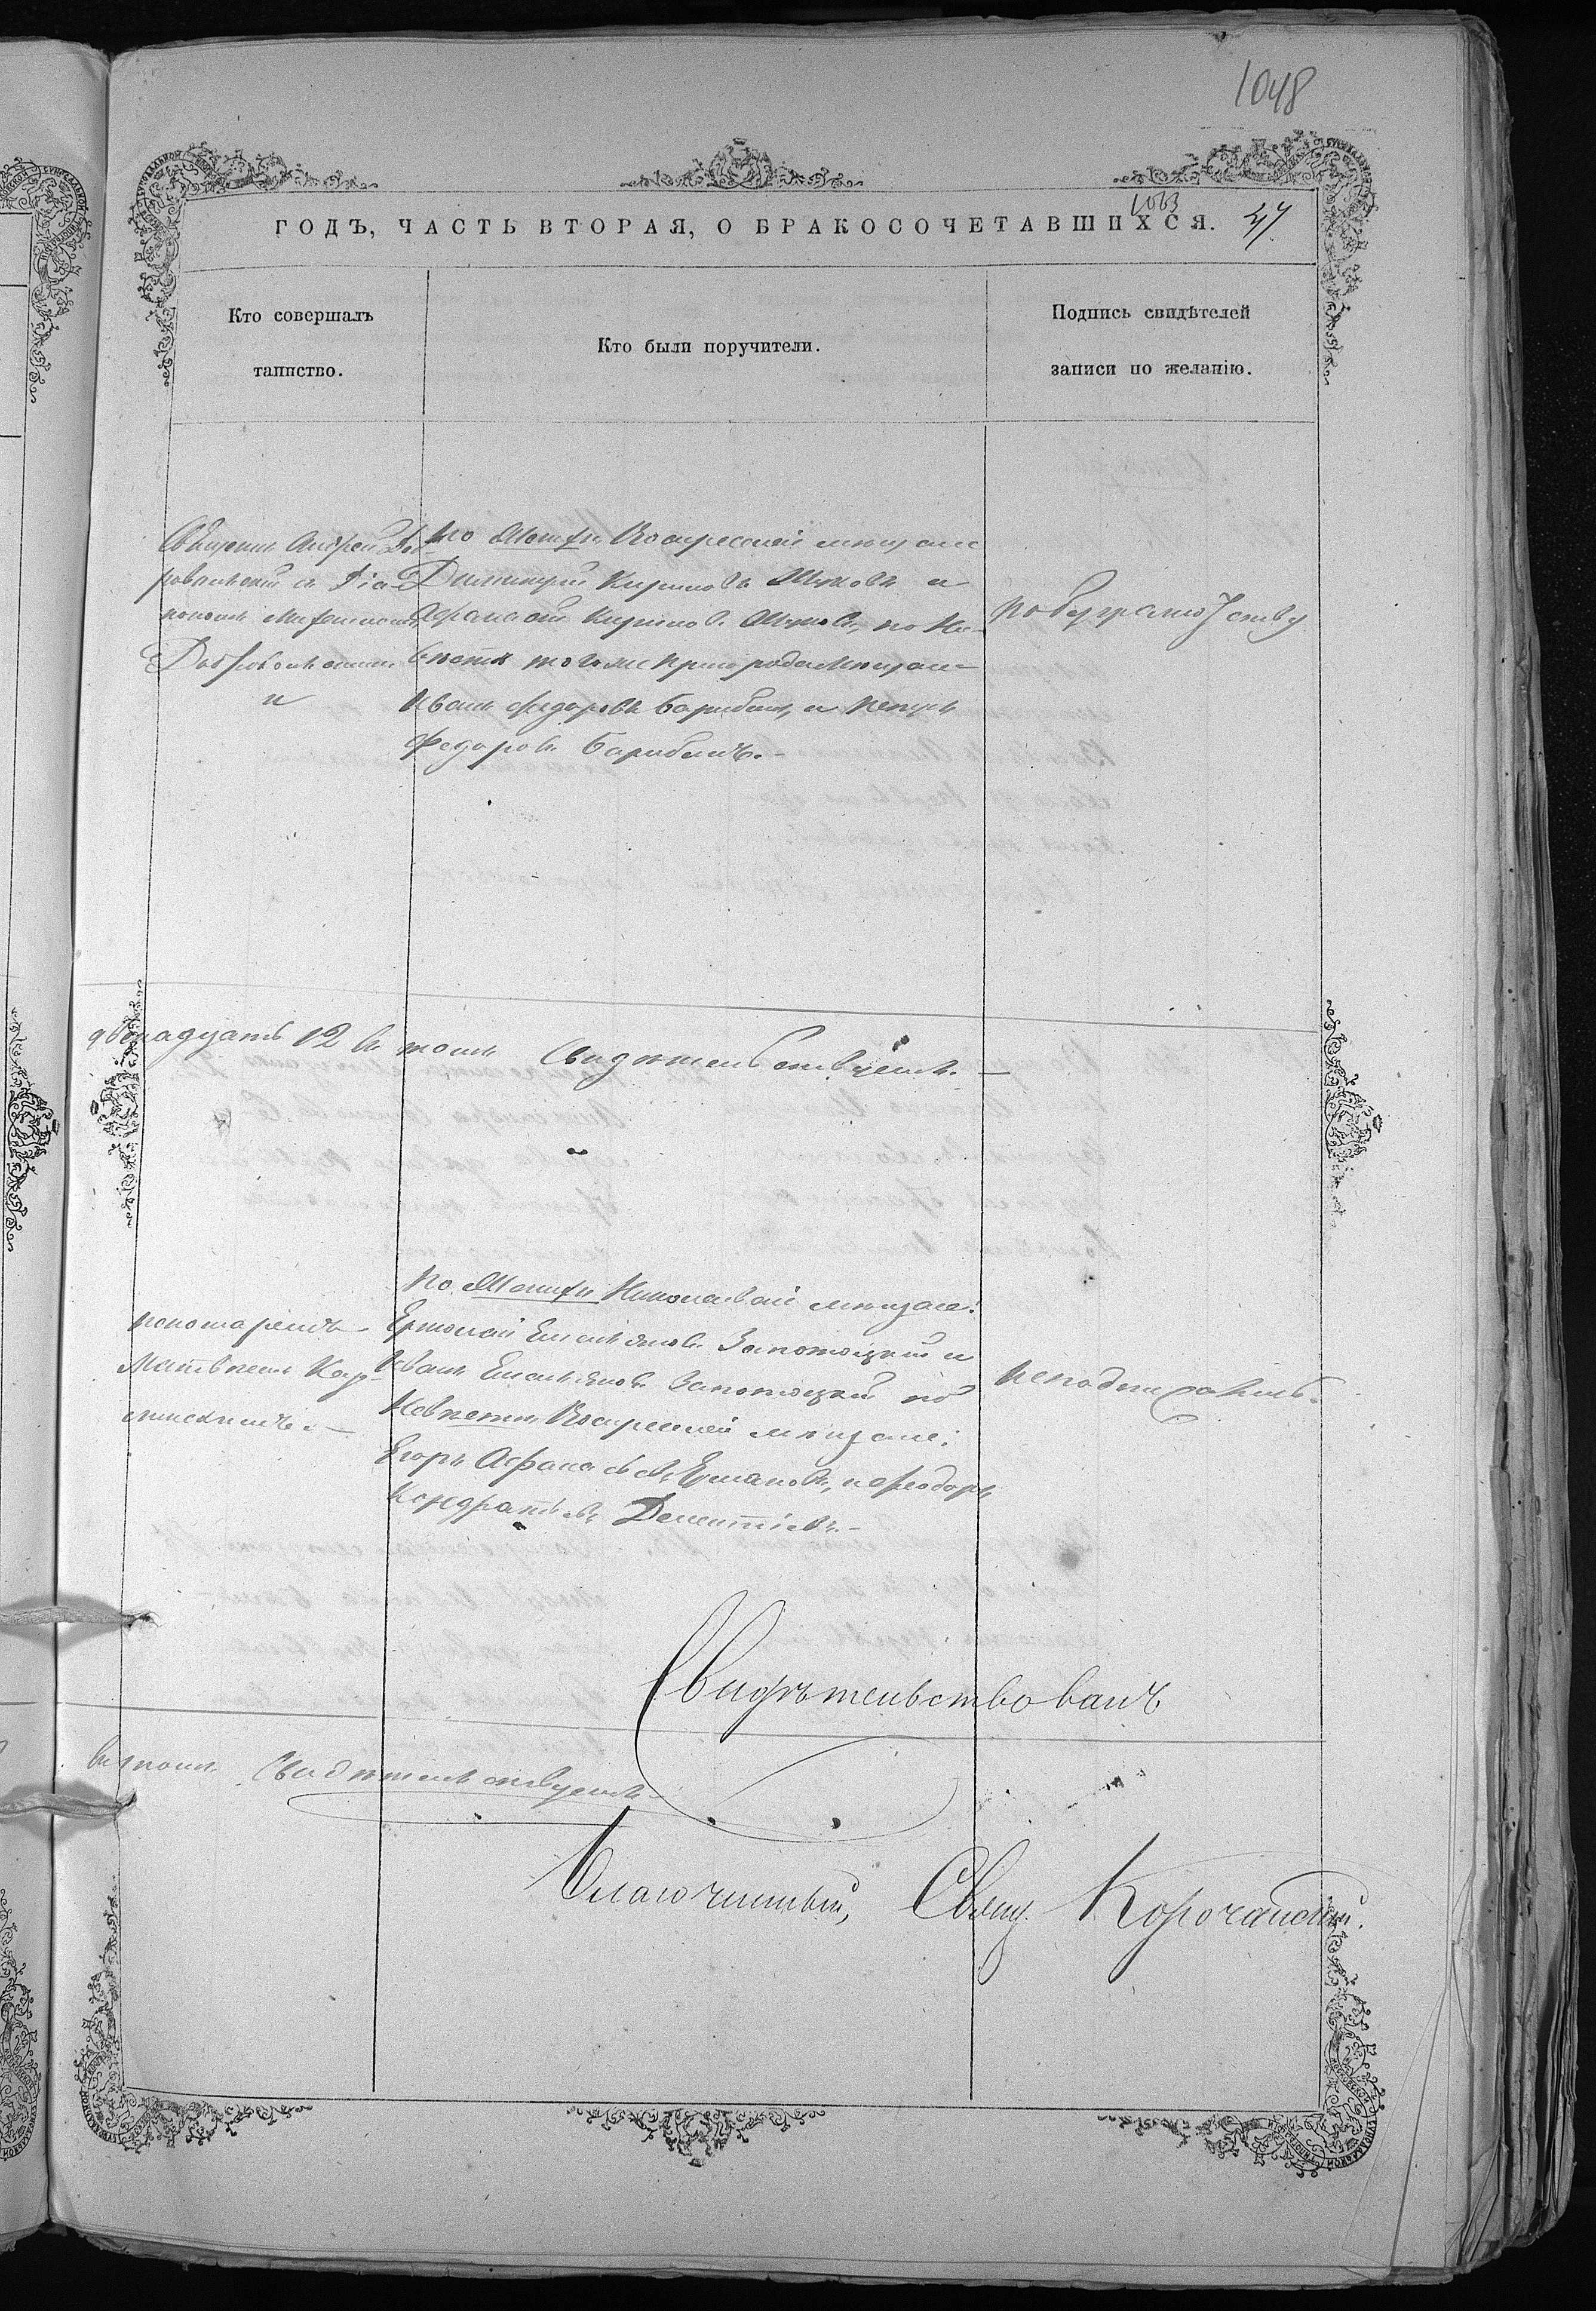 1048
1063
ГОДЪ, ЧАСТЬ ВТОРАЯ, О БРАКОСОЧЕТАВШИХСЯ. 47
Кто совершалъ
таинство.
Кто были поручители.
Подпись свидѣтелей
записи по желанію.
Священникъ Андрей Доб-
ровольскій съ Діа-
кономъ
Добровольскимъ
и
По Женихѣ Воскресенскій мѣщане
Димитрій Кириловъ и
Афанасій Кириловъ по Не-
вѣстѣ того же пригорода мѣщане
Иванъ Федоровъ Барабашъ, и Петръ
Федоровъ Барабашъ.-
По безграмотству
двѣнадцать 12 въ томъ Свидѣтельствуемъ.-
пономаремъ
Матвѣемъ
По Женихѣ Николаевскій мѣщане:
Ермолай Емельяновъ Запотоцкій и
Иванъ Емельяновъ Запотоцкій по
Невѣстѣ Воскресенскій мѣщане:
Егоръ Афанасьевъ Ермаковъ, и Феодоръ
Кондратьевъ Дементіевъ.-
неподписались.
Свидѣтельствовалъ
въ томъ Свидѣтельствуемъ
Благочинный, Свящ. Корочанскій.